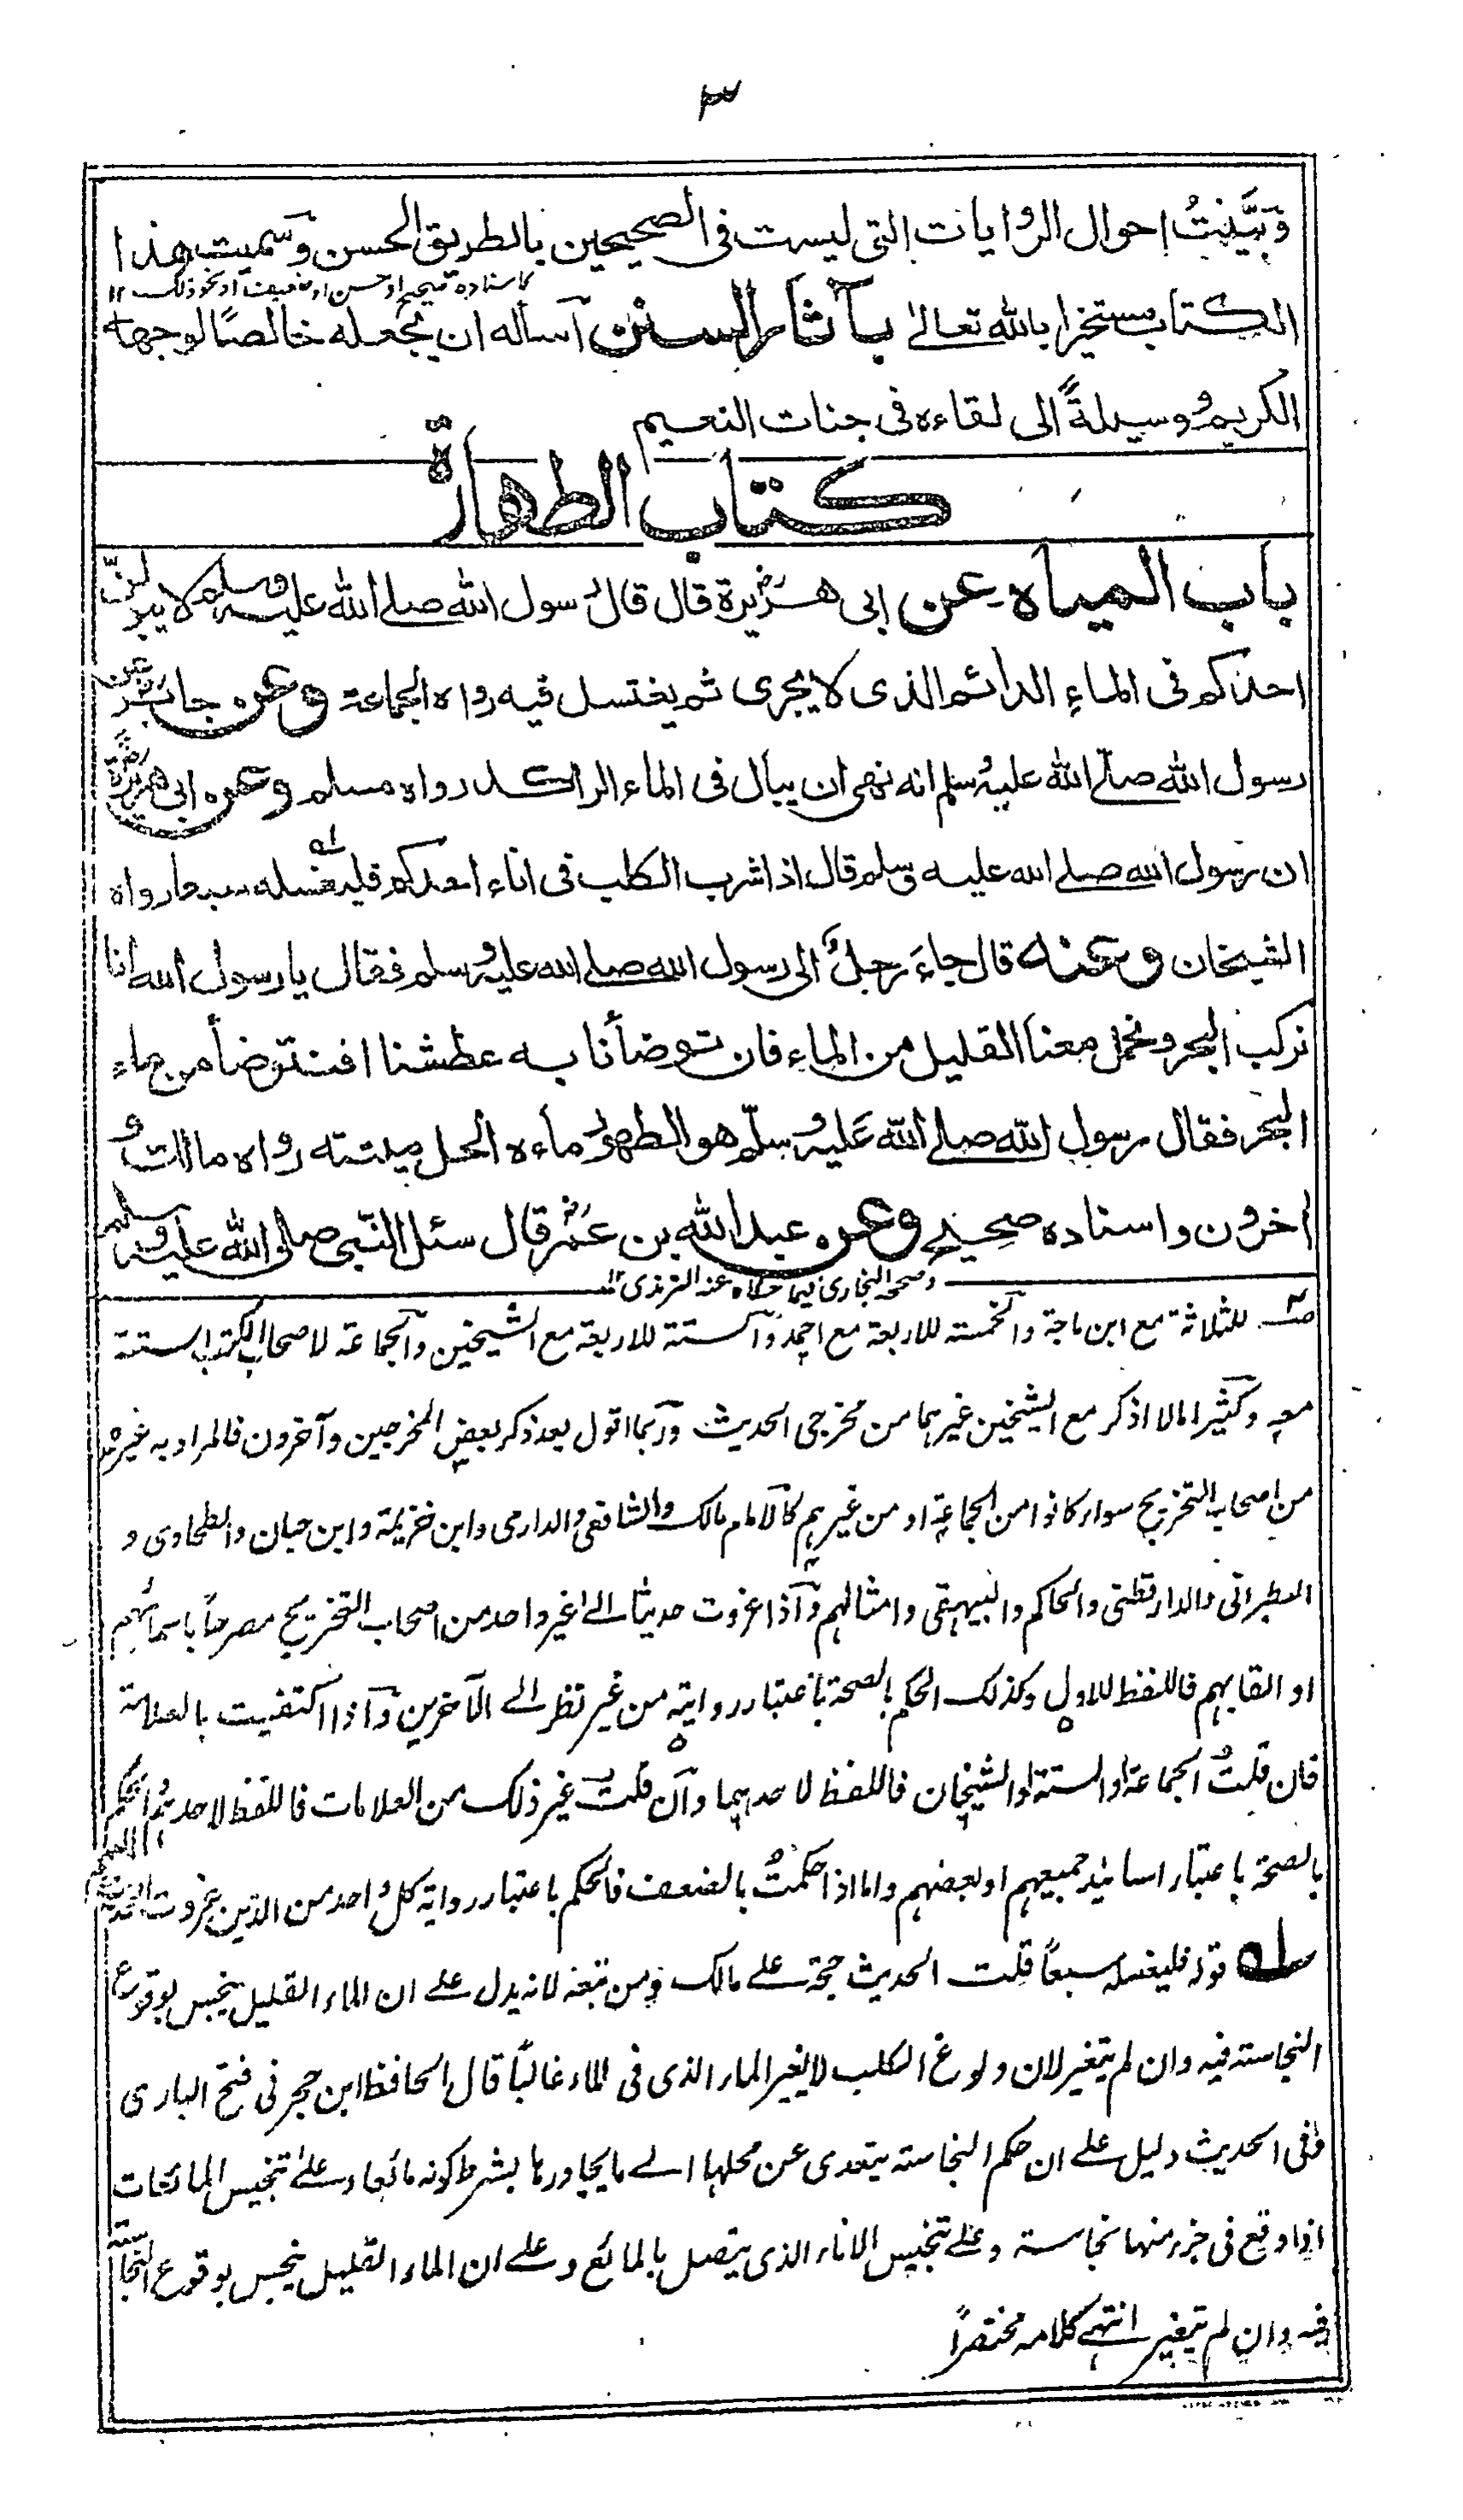 ٣
وَبَيَّنتُ احوال الروايات التى ليست فى الصحيحين بالطريق الحسن وسميت هذا
كاسناده صحيح او حسن او ضعيف او نحو ذلك ١٢
الكتاب مستخيرا بالله تعالىٰ بآثار السنن آسأله ان يجعله خالصًا لوجهه
الكريم ووسيلةً الى لقاءه فى جنات النعيم
كتاب الطهارة
باب المياه عن ابى هريرة رض قال قال رسول الله صلى الله عليه وسلم لا يبولنّ
احدكم فى الماءِ الدائم الذى لا يجرى ثم يغتسل فيه رواه الجماعة وعن جابر رض عن
رسول الله صلّى الله عليه وسلم انه نهى ان يبال فى الماء الراكد رواه مسلم وعن ابى هريرة رض
ان رسول الله صلى الله عليه وسلم قال اذا شرب الكلب فى اناء احدكم فليغسله سبعا رواه
الشيخان وعنه قال جاءَ رجلٌ الى رسول الله صلى الله عليه وسلم فقال يا رسول الله انا
نركب البحر ونحمل معنا القليل من الماءِ فان توضأنا به عطشنا افنتوضأ من ماء
البحر فقال رسول الله صلى الله عَليه وسلّم هو الطهور ماءه الحل ميتته رواه مالك و
اخرون واسناده صحيح وعن عبد الله بن عُمَر رض قال سئل النّبى صلى الله عليه وسلم
وصححه البخارى فيما حكاه عنه الترمذى ١٢
للثلاثة مع ابن ماجة والخمسة للاربعة مع احمد وآلستة للاربعة مع الشيخين وآلجماعة لاصحاب الكتب الستة
معه وكثيرا ما لا اذكر مع الشيخين غيرهما من مخرجى الحديث وربما اقول بعد ذكر بعض المخرجين وآخرون فالمراد به غيرهم
من اصحاب التخريج سواء كانوا من الجماعة او من غيرهم كالامام مالك والشافعى والدارمى وابن خزيمة وابن حبان والطحاوى و
الطبرانى والدارقطنى والحاكم والبيهقى وامثالهم وآذا عزوت حديثا الى غير واحد من اصحاب التخريج مصرحاً باسمائهم
او القابهم فاللفظ للاول وكذلك الحكم بالصحة باعتبار روايته من غير نظر الى الآخرين وآذا اكتفيت بالعلامة
فان قلتُ الجماعة او الستة او الشيخان فاللفظ لاحدهما وآن قلتُ غير ذلك من العلامات فاللفظ لاحدهم والحكم
بالصحة باعتبار اسانيد جميعهم او بعضهم واما اذا حكمتُ بالضعف فالحكم باعتبار رواية كل واحد من الذين عزوت الحديث اليهم
له قوله فليغسله سبعاً قلت الحديث حجة على مالك ومن تبعه لانه يدل على ان الماء القليل ينجس بوقوع
النجاسته فيه وان لم يتغير لان ولوغ الكلب لا يغير الماء الذى فى الماء غالباً قال الحافظ ابن حجر فى فتح البارى
وفى الحديث دليل على ان حكم النجاسته يتعدى عن محلها الى ما يجاورها بشرط كونه مائعا وعلىٰ تنجيس المائعات
اذا وقع فى جزء منها نجاسته وعلى تنجيس الاناء الذى يتصل بالمائع وعلى ان الماء القليل ينجس بوقوع النجاسته
فيه وان لم يتغير انتهى كلامه مختصراً